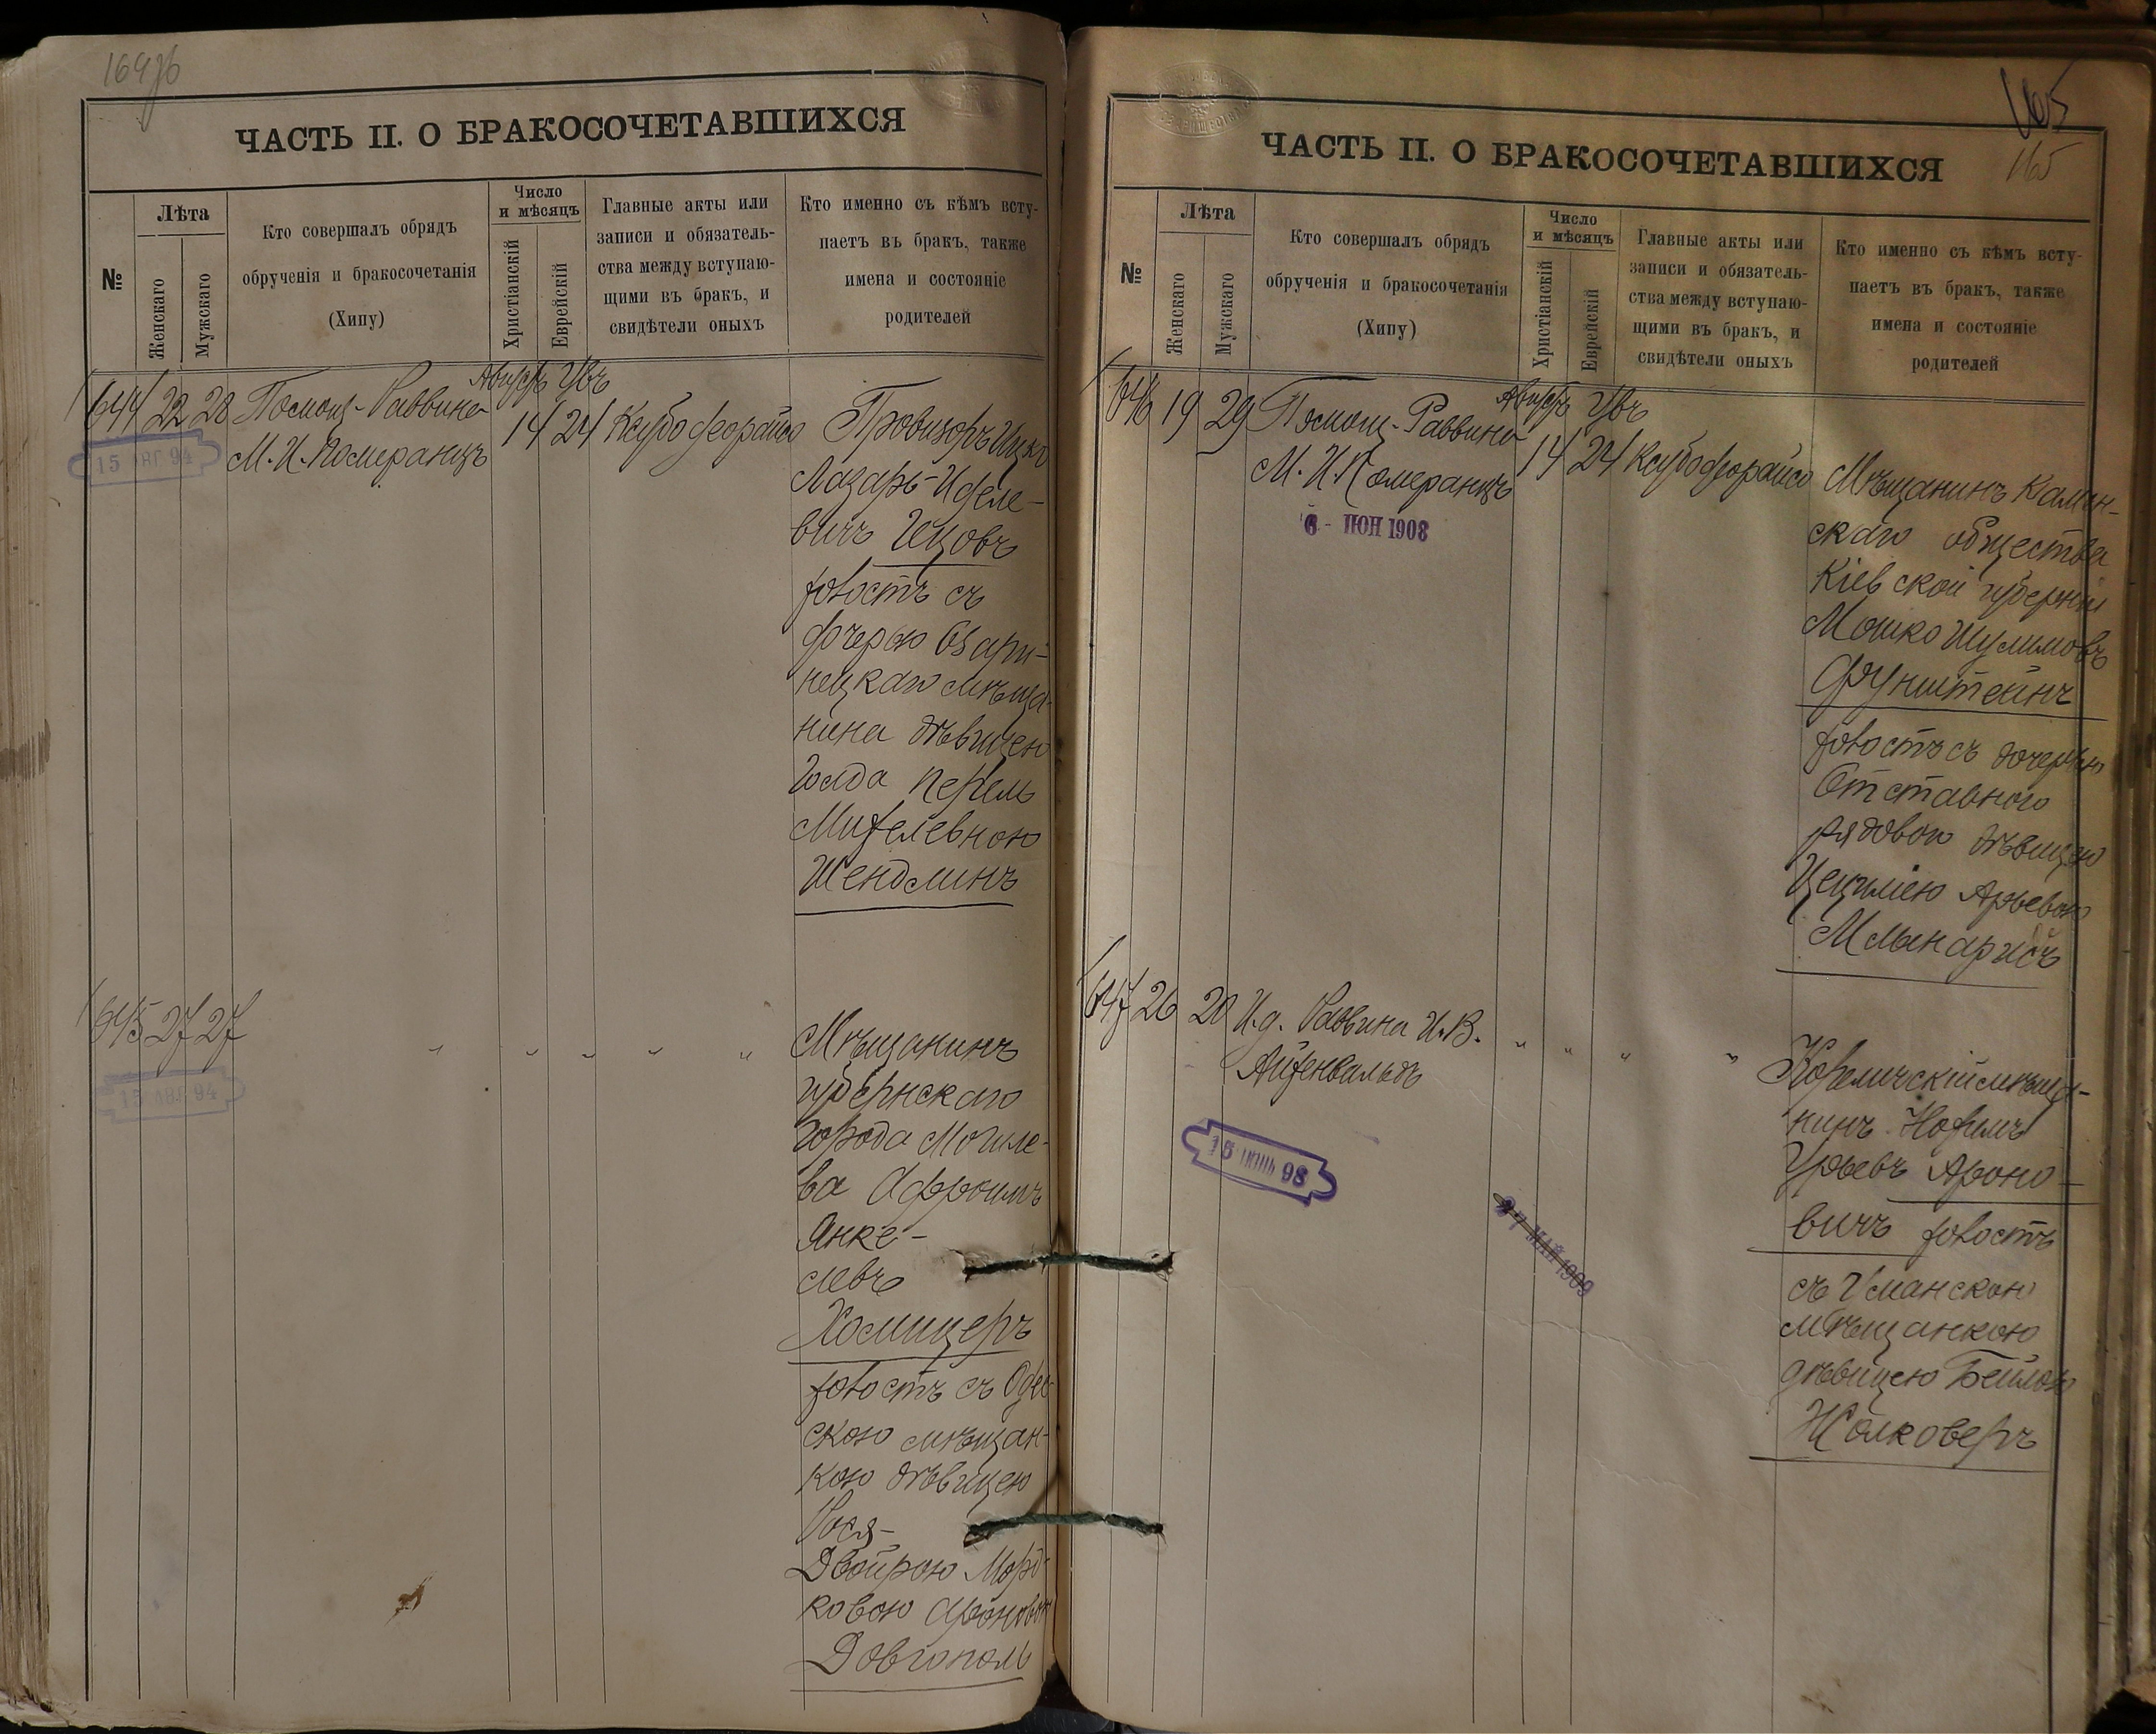 164 об
ЧАСТЬ II. О БРАКОСОЧЕТАВШИХСЯ
№
Лѣта
Женскаго
Мужскаго
Кто совершалъ обрядъ
обрученія и бракосочетанія
(Хипу)
Число
и мѣсяцъ
Христіанскій
Еврейскій
Главные акты или
записи и обязатель-
ства между вступаю-
щими въ бракъ, и
свидѣтели оныхъ
Кто именно съ кѣмъ всту-
паетъ въ бракъ, также
имена и состояніе
родителей
644 22 28 Помощ. Раввина
М. И. Померанцъ
Августъ
14 24
15 АВГ 94
Провизоръ Ицко
Лазарь-Иделе-
вичъ Ицовъ
холостъ съ
дочерью Озари-
нецкаго мѣща-
нина дѣвицею
Голда Перель
Михелевною
Шендлинъ
645 27 27
15 АВГ 94
Мѣщанинъ
губернскаго
города Могиле-
ва Афроимъ
Янке-
левъ
Холицеръ
холостъ съ Одес-
скою мѣщан-
кою дѣвицею
Рося-
Двойрою Морд-
ковою Ароновою
Довгополь
165
165
ЧАСТЬ II. О БРАКОСОЧЕТАВШИХСЯ
№
Лѣта
Женскаго
Мужскаго
Кто совершалъ обрядъ
обрученія и бракосочетанія
(Хипу)
Число
и мѣсяцъ
Христіанскій
Еврейскій
Главные акты или
записи и обязатель-
ства между вступаю-
щими въ бракъ, и
свидѣтели оныхъ
Кто именно съ кѣмъ всту-
паетъ въ бракъ, также
имена и состояніе
родителей
646 19 29 Помощ. Раввина
М. И. Померанцъ
Августъ
14 24
6 - ИЮН 1908
Мѣщанинъ Камен-
скаго общества
Кіевской губерніи
Мошко Шулимовъ
Фунштейнъ
холостъ съ дочерью
Отставного
рядового дѣвицею
Цецилею Арьевою
Млынарисъ
647 26 20 И.д. Раввина И. В.
Айзенвальдъ
98
27 МАЙ 1909
Кореличскій мѣща-
нинъ Нохимъ
Урьевъ Ароно-
вичъ холостъ
съ Уманскою
мѣщанкою
дѣвицею Бейлою
Жолковеръ